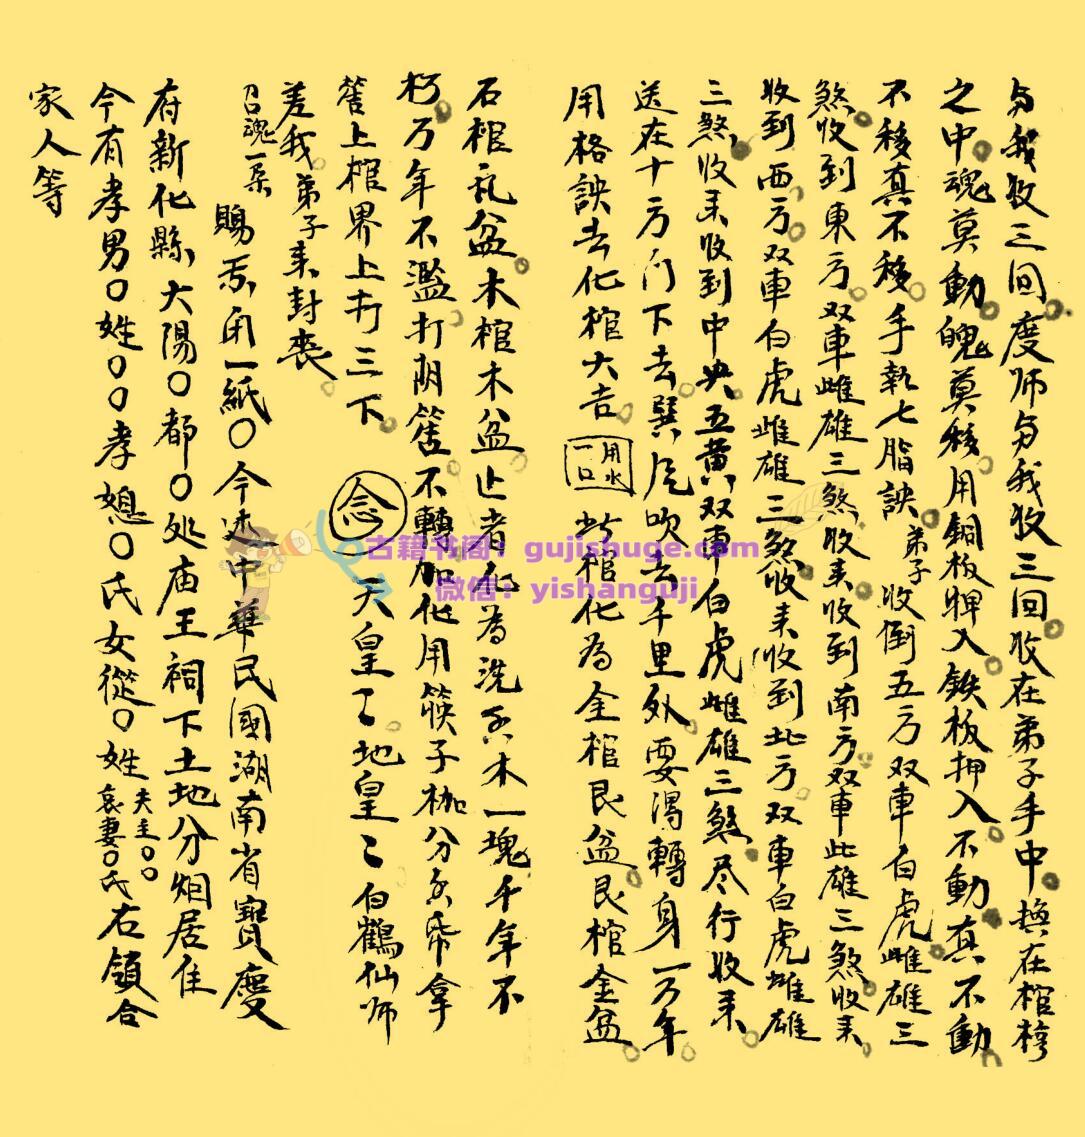 与我收三回度师与我收三回收在弟子手中换在棺椁
之中魂莫動魄莫移用銅板押入鉄板押入不動真不動
不移真不移手執七脂訣弟子收倒五方双車白虎雌雄三
煞收到東方双車雌雄三煞收来收到南方双車此雄三煞收来
收到西方双車白虎雌雄三煞收来收到北方双車白虎雄雄
三煞收来收到中央五黄双車白虎雌雄三煞尽行收来
送在十方门下去巽氏吹去千里外要濁轉身一万年
用格訣去化棺大吉
用水一口
此棺化為全棺艮盆艮棺金盆
石棺瓦盆木棺木盆亡者化為洗木一塊千年不
朽万年不濫打阴筶不轉加化用筷子枷分帛拿
筶上棺界上打三下
念
天皇〻地皇〻白鶴仙师
差我弟子来封丧
召魂一条
賜示闭一紙〇今述中華民國湖南省寶慶
府新化縣大陽〇都〇处庙王祠下土地分烟居住
今有孝男〇姓〇〇孝媳〇氏女從〇姓夫主〇〇哀妻〇氏右領合
家人等
古籍书阁：gujishuge.com
微信：yishanguji